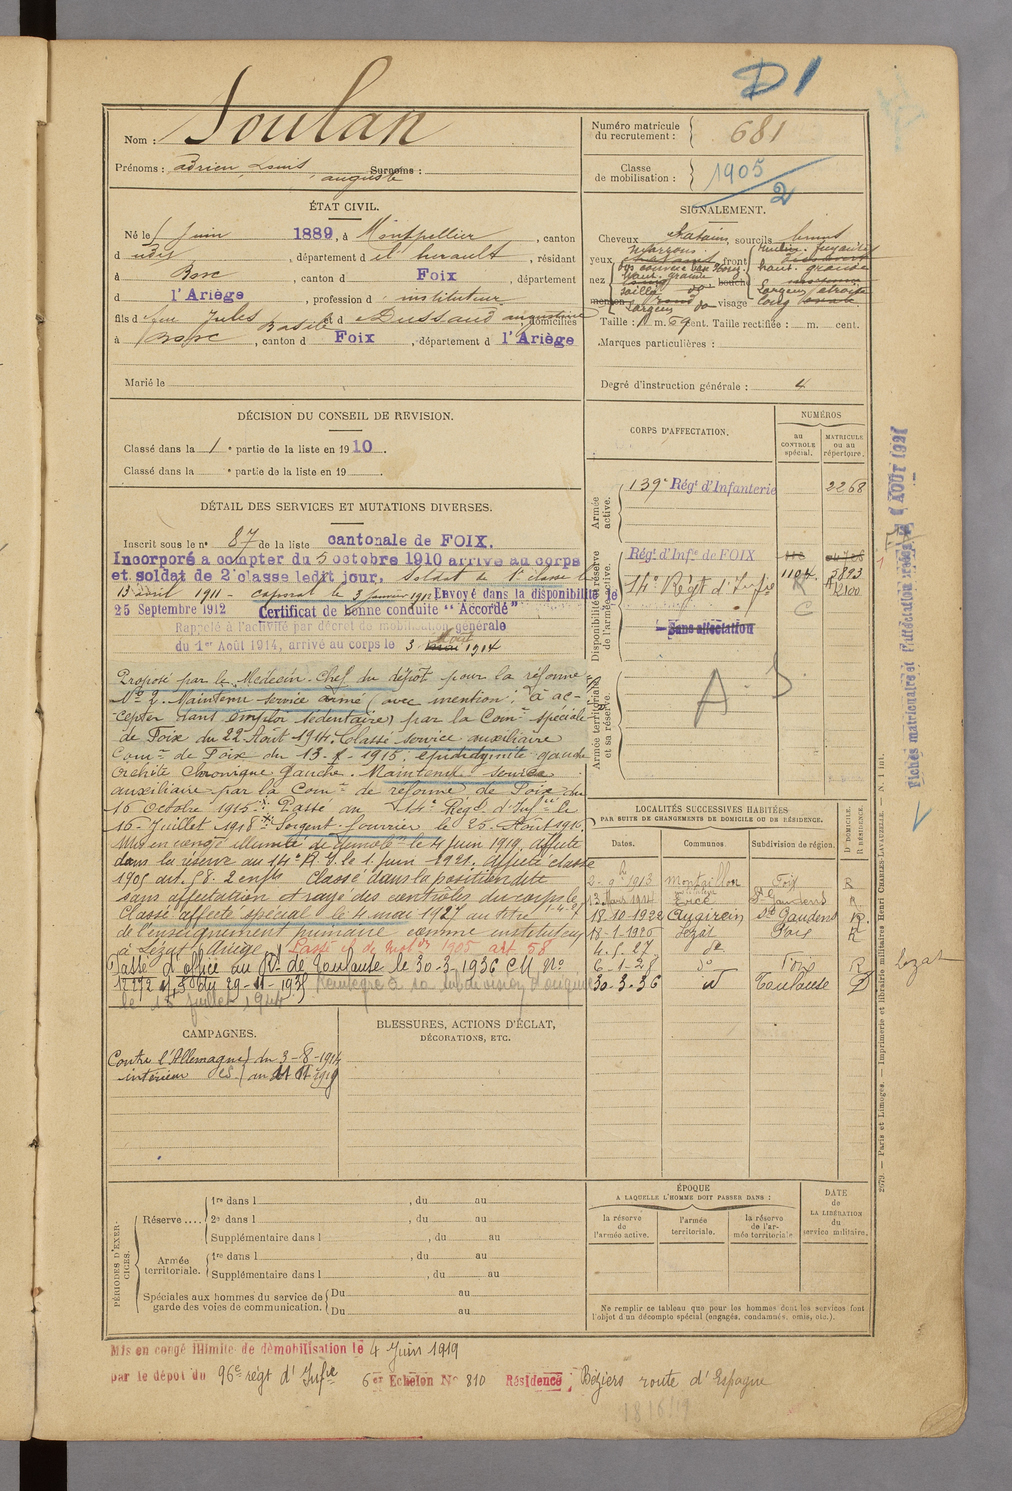 D1
Nom : Soulan
Prénoms : Adrien, Louis, auguste Surnoms :
Numéro matricule du recrutement : 681
Classe de mobilisation : 1905/2
ÉTAT CIVIL.
Né le 1 Juin 1889, à Montpellier, canton
d udit, département d e l'hérault, résidant
à Bosc, canton d Foix, département
d l'Ariège, profession d instituteur
fils d feu Jules Basile et d Dussaud augustine, domiciliés
à Bosc, canton d Foix, département d l'Ariège
Marié le
SIGNALEMENT.
Cheveux chatains, sourcils bruns
yeux marrons front
nez bouche
menton visage
Taille : 1 m. 59 cent. Taille rectifiée : m. cent.
Marques particulières :
Degré d'instruction générale : 4
DÉCISION DU CONSEIL DE REVISION.
Classé dans la 1e partie de la liste en 1910.
Classé dans la e partie de la liste en 19
DÉTAIL DES SERVICES ET MUTATIONS DIVERSES.
Inscrit sous le n° 87 de la liste cantonale de FOIX.
Incorporé a compter du 5 octobre 1910 arrivé au corps
et soldat de 2e classe ledit jour, Soldat de 1e classe le
13 avril 1911 - caporal le 3 janvier 1912 Envoyé dans la disponibilité le
25 Septembre 1912 Certificat de bonne conduite "Accordé"
Rappelé à l'activité par décret de mobilisation générale
du 1er Août 1914, arrivé au corps le 3 Août 1914
Proposé par le Médecin-Chef du dépôt pour la réforme
N° 2. Maintenu service armé (avec mention : "à ac-
-cepter dans emploi sédentaire) par la Comon spéciale
de Foix du 22 Août 1914. Classé service auxiliaire
Comon de Foix du 13-8-1915, épididymite gauche
Orchite chronique gauche. Maintenu service
auxiliaire par la Comon de réforme de Foix du
16 Octobre 1915. Passé au 14e Régt d'Infie le
16 Juillet 1918. Sergent-fourrier le 25 Août 1918.
Mis en congé illimité de démobon le 4 juin 1919. affecté
dans la réserve au 14e R.I. le 1 Juin 1921. affecté classe
1905 art. 58. 2 enfts Classé dans la position dite
sans affectation et rayé des contrôles du corps le 1-4-27
Classé affecté spécial le 4 mai 1927 au titre
de l'enseignement primaire comme instituteur
à Lézat (Ariège) Passé cl. de mobon 1905 art 58
Passé d'office au Rt de Toulouse le 30-3-1936 CM No
12272 du 29-11-1935 Réintégré à sa subdivision d'origine
le 1er juillet 1944
CORPS D'AFFECTATION.
NUMÉROS
au CONTROLE spécial.
MATRICULE ou au répertoire.
Armée active.
139e Régt d'Infanterie 2268
Disponibilité et réserve de l'armée active.
Régt d'Infie de FOIX
14e Régt d'Infie 1104
Sans affectation
Armée territoriale et sa réserve.
A. S
LOCALITÉS SUCCESSIVES HABITÉES
PAR SUITE DE CHANGEMENTS DE DOMICILE OU DE RÉSIDENCE.
Dates. Communes. Subdivision de région. D. DOMICILE. R. RÉSIDENCE.
2-9-1913 Montgaillon Foix R
13 Mars 1914 Encé St Gaudens R
18-10-1922 Augirein St Gaudens R
18-1-1926 Lézat Foix R
4-5-27 do
6-1-28 do Foix R lezat
30-3-36 id Toulouse D
CAMPAGNES.
Contre l'Allemagne du 3-8-1914
intérieur CS. au 1919
BLESSURES, ACTIONS D'ÉCLAT,
DÉCORATIONS, ETC.
PÉRIODES D'EXERCICES.
Réserve.... 1re dans l , du au
2e dans l , du au
Supplémentaire dans l , du au
Armée territoriale. 1re dans l , du au
Supplémentaire dans l , du au
Spéciales aux hommes du service de garde des voies de communication. Du au
Du au
ÉPOQUE
A LAQUELLE L'HOMME DOIT PASSER DANS :
la réserve de l'armée active.
l'armée territoriale.
la réserve de l'armée territoriale
DATE de LA LIBÉRATION du service militaire.
Ne remplir ce tableau que pour les hommes dont les services font
l'objet d'un décompte spécial (engagés, condamnés, omis, etc.).
Mis en congé illimité de démobilisation le 4 Juin 1919
par le dépôt du 96e régt d'Infie 6e Echelon No 810 Résidence Béziers route d'Espagne
2679. — Paris et Limoges. — Imprimerie et librairie militaires Henri CHARLES-LAVAUZELLE. — N. 1 int.